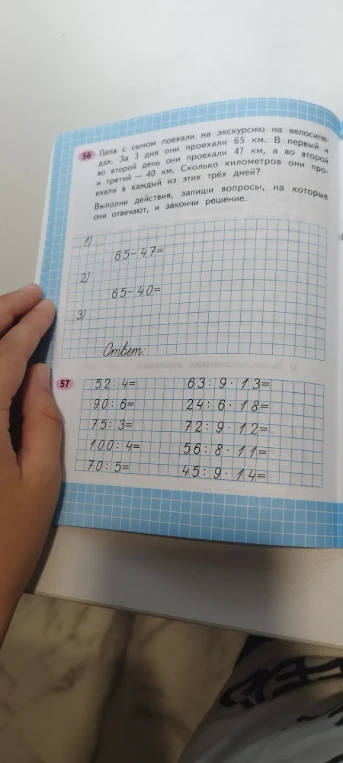 56 Папа с сыном поехали на экскурсию на велосипе-
дах. За 3 дня они проехали 65 км. В первый и
во второй день они проехали 47 км, а во второй
и третий — 40 км. Сколько километров они про-
ехали в каждый из этих трёх дней?
Выполни действия, запиши вопросы, на которые
они отвечают, и закончи решение.
1)
65-47=
2)
65-40=
3)
Ответ:
57 52:4= 63:9·13=
90:6= 24:6·18=
75:3= 72:9·12=
100:4= 56:8·11=
70:5= 45:9·14=